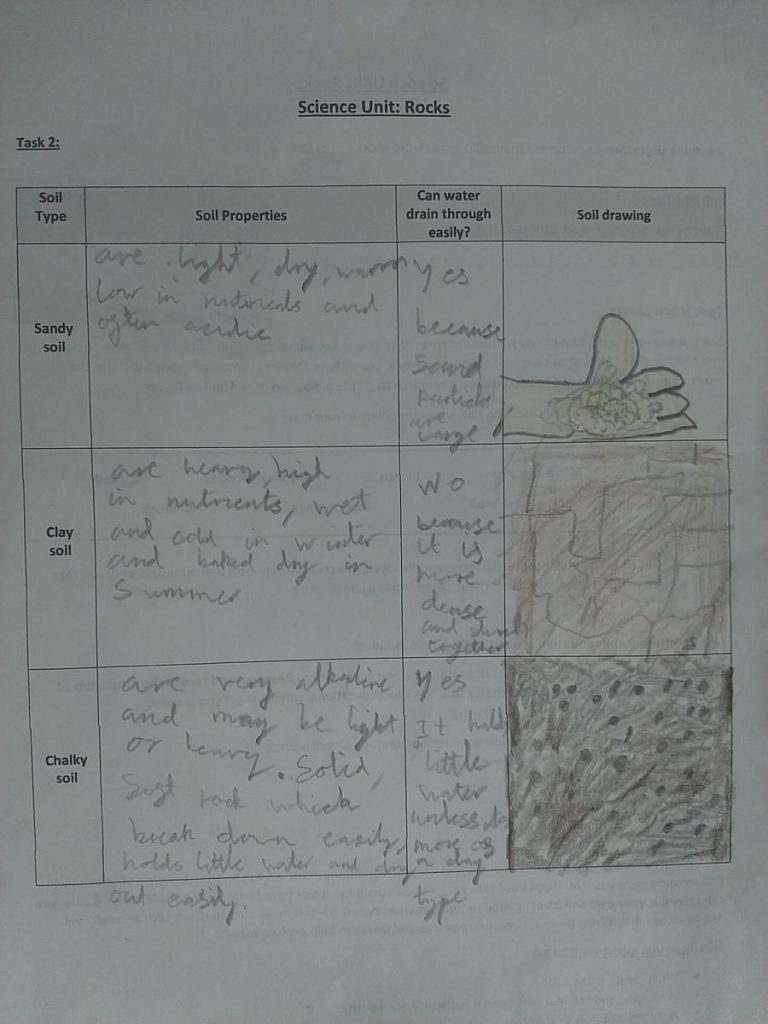 Science Unit: Rocks
Task 2:
Soil Type
Soil Properties
Can water drain through easily?
Soil drawing
Sandy soil
are light, dry, warm
low in nutrients and
often acidic
Yes
because
sand
particles
are
large
Clay soil
are heavy, high
in nutrients, wet
and cold in winter
and baked dry in
Summer
No
because
it is
more
dense
and
together
Chalky soil
are very alkaline
and may be light
or heavy. Solid,
Soft rock which
break down easily,
holds little water and dry
out easily.
Yes
It hold
little
water
unless
more of
a clay
type